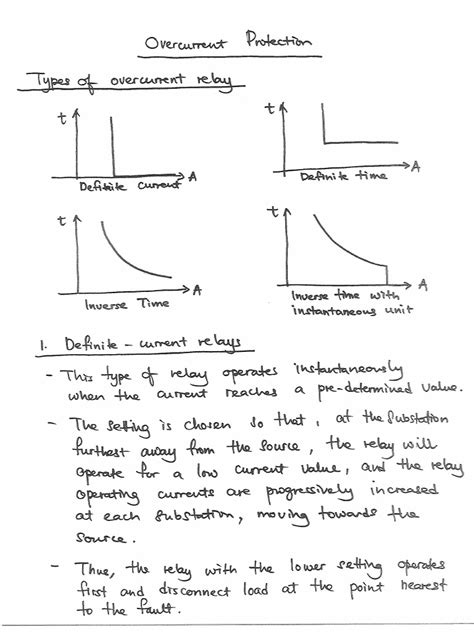 Overcurrent Protection
Types of overcurrent relay
t
A
Definite current
t
A
Definite time
t
A
Inverse Time
t
A
Inverse time with
instantaneous unit
1. Definite - current relays
- This type of relay operates instantaneously
when the current reaches a pre-determined value.
- The setting is chosen so that, at the substation
furthest away from the source, the relay will
operate for a low current value, and the relay
operating currents are progressively increased
at each substation, moving towards the
source.
- Thus, the relay with the lower setting operates
first and disconnect load at the point nearest
to the fault.